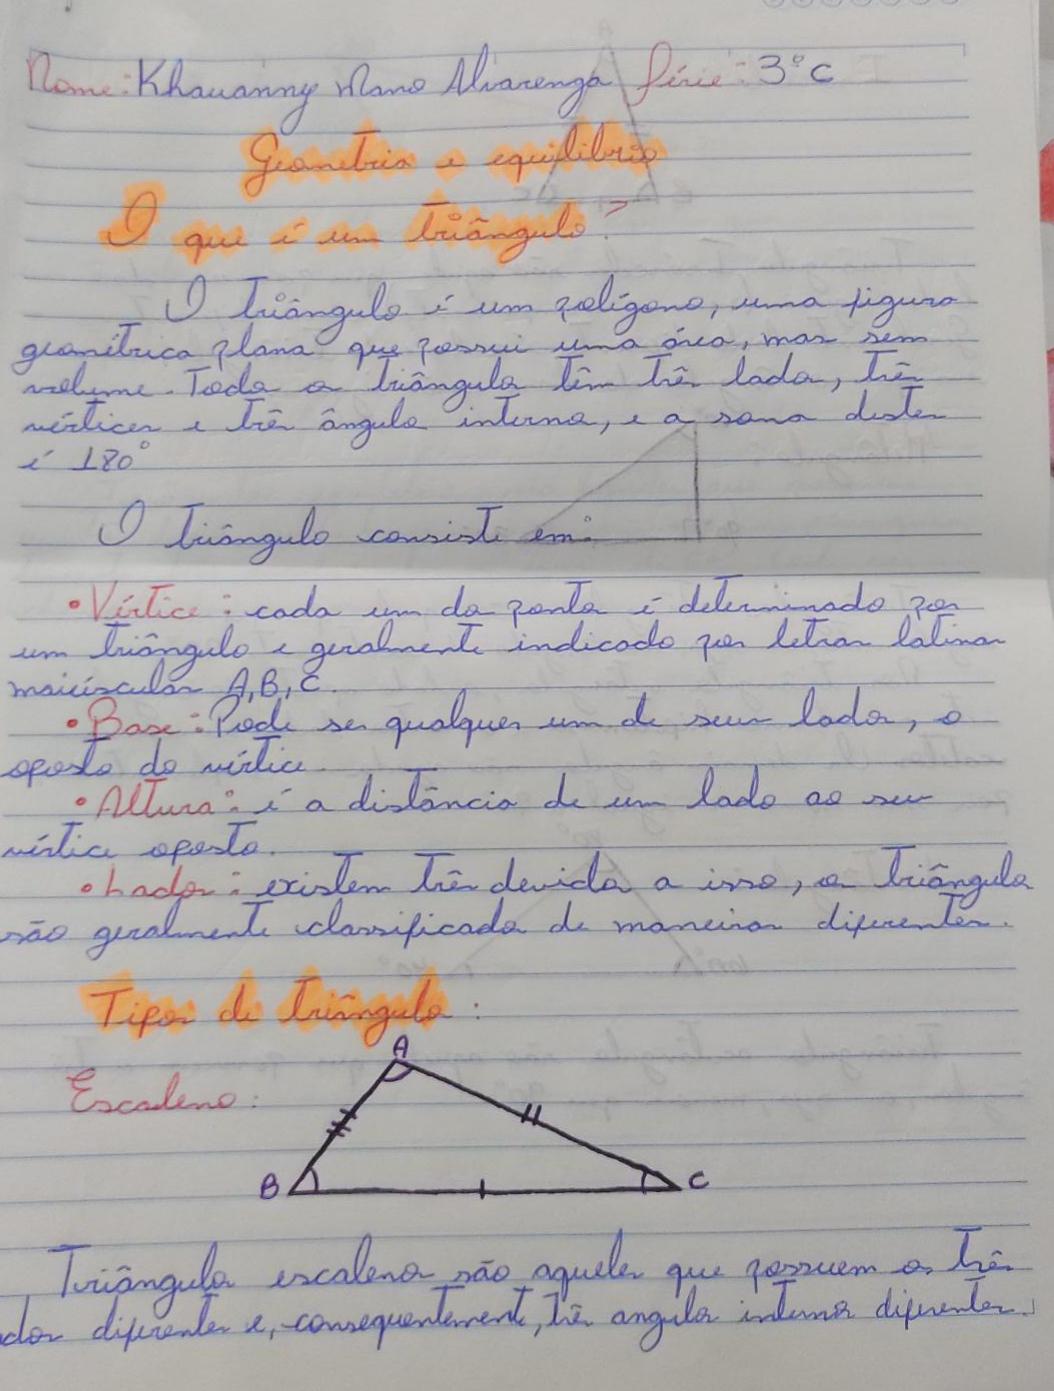 Nome: Khauanny Mano Alvarenga Série: 3°C
Geometria e equilíbrio
O que é um triângulo?
O triângulo é um polígono, uma figura
geométrica plana que possui uma área, mas sem
volume. Todos os triângulos têm três lados, três
vértices e três ângulos internos, e a soma destes
é 180°
O triângulo consiste em:
• Vértice: cada um da ponta é determinado por
um triângulo e geralmente indicado por letras latinas
maiúsculas A, B, C.
• Base: Pode ser qualquer um de seus lados, o
oposto do vértice.
• Altura: é a distância de um lado ao seu
vértice oposto.
• Lados: existem três devido a isso, os triângulos
são geralmente classificados de maneiras diferentes.
Tipos de triângulos:
Escaleno:
A
B
C
Triângulos escalenos são aqueles que possuem os três
lados diferentes e, consequentemente, três angulos internos diferentes.